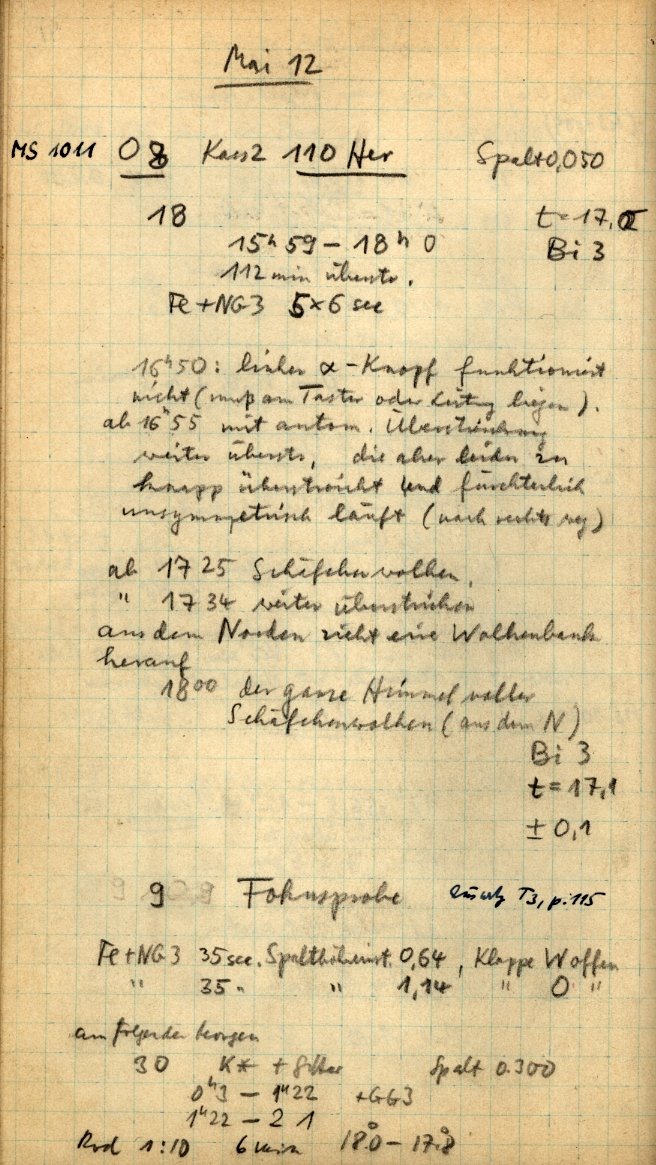 Mai 12
MS 1011 08 Kass2 110 Her Spalt 0,050
18 t = 17,0
15ʰ 59 – 18ʰ 0 Bi 3
112 min überstr.
Fe + NG3 5×6 sec
16ʰ50: linker α-Knopf funktioniert
nicht (muß am Taster oder Leitung liegen).
ab 16ʰ55 mit autom. Überstreichung
weiter überstr., die aber leider zu
knapp überstreicht und fürchterlich
unsymmetrisch läuft (nach rechts weg)
ab 17 25 Schäfchenwolken,
" 17 34 weiter überstrichen
aus dem Norden zieht eine Wolkenbank
herauf
18⁰⁰ der ganze Himmel voller
Schäfchenwolken (aus dem N)
Bi 3
t = 17,1
± 0,1
9 Fokusprobe T3, p. 115
Fe + NG3 35 sec. Spalthöheinst. 0,64, Klappe W offen
" 35 " " 1,14 " O "
am folgenden Morgen
30 K* + Filter Spalt 0.300
0ʰ3 – 1ʰ22 + GG3
1ʰ22 – 2 1
1:10 6 min 18°0 – 17°8